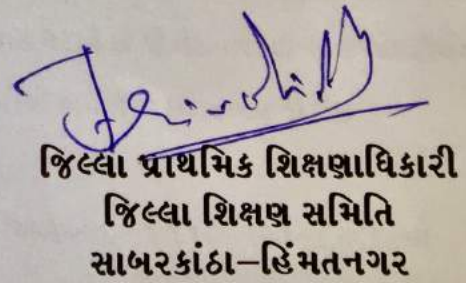 જિલ્લા પ્રાથમિક શિક્ષણાધિકારી
જિલ્લા શિક્ષણ સમિતિ
સાબરકાંઠા–હિંમતનગર